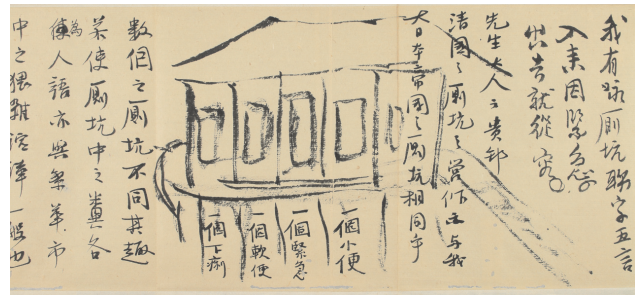 我有詠厠坑聯字五言
入来因緊急
出去就從容
先生大人之貴邦
清国之厠坑之営作之与我
大日本帝国之厠坑相同乎
一個小便
一個緊急
一個軟便
一個下痢
数個之厠坑不同其趣
若使厠坑中之糞各
為人語亦與華市
中之猥雜喧譁一般也